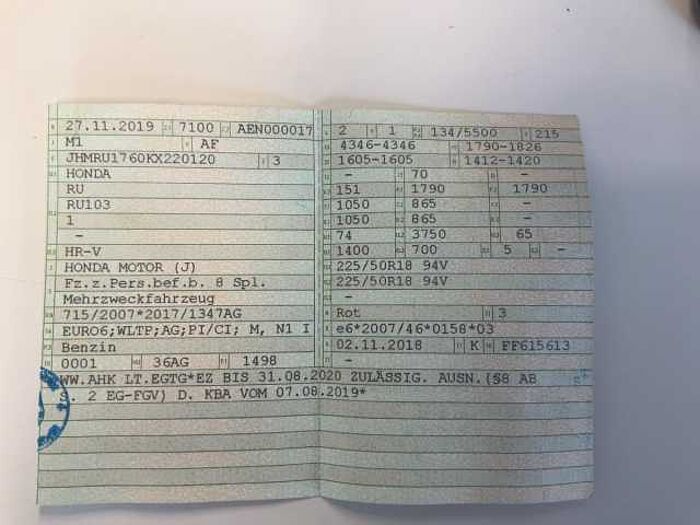 27.11.2019 7100 AEN000017
M1 AF
JHMRU1760KX220120 3
HONDA
RU
RU103
1
-
HR-V
HONDA MOTOR (J)
Fz.z.Pers.bef.b. 8 Spl.
Mehrzweckfahrzeug
715/2007*2017/1347AG
EURO6;WLTP;AG;PI/CI; M, N1 I
Benzin
0001 36AG 1498
2 1 134/5500 215
4346-4346 1790-1826
1605-1605 1412-1420
- 70 -
151 1790 1790
1050 865 -
1050 865 -
74 3750 65
1400 700 5 -
225/50R18 94V
225/50R18 94V
-
Rot 3
e6*2007/46*0158*03
02.11.2018 K FF615613
-
WW.AHK LT.EGTG*EZ BIS 31.08.2020 ZULÄSSIG. AUSN.(§8 AB
S. 2 EG-FGV) D. KBA VOM 07.08.2019*